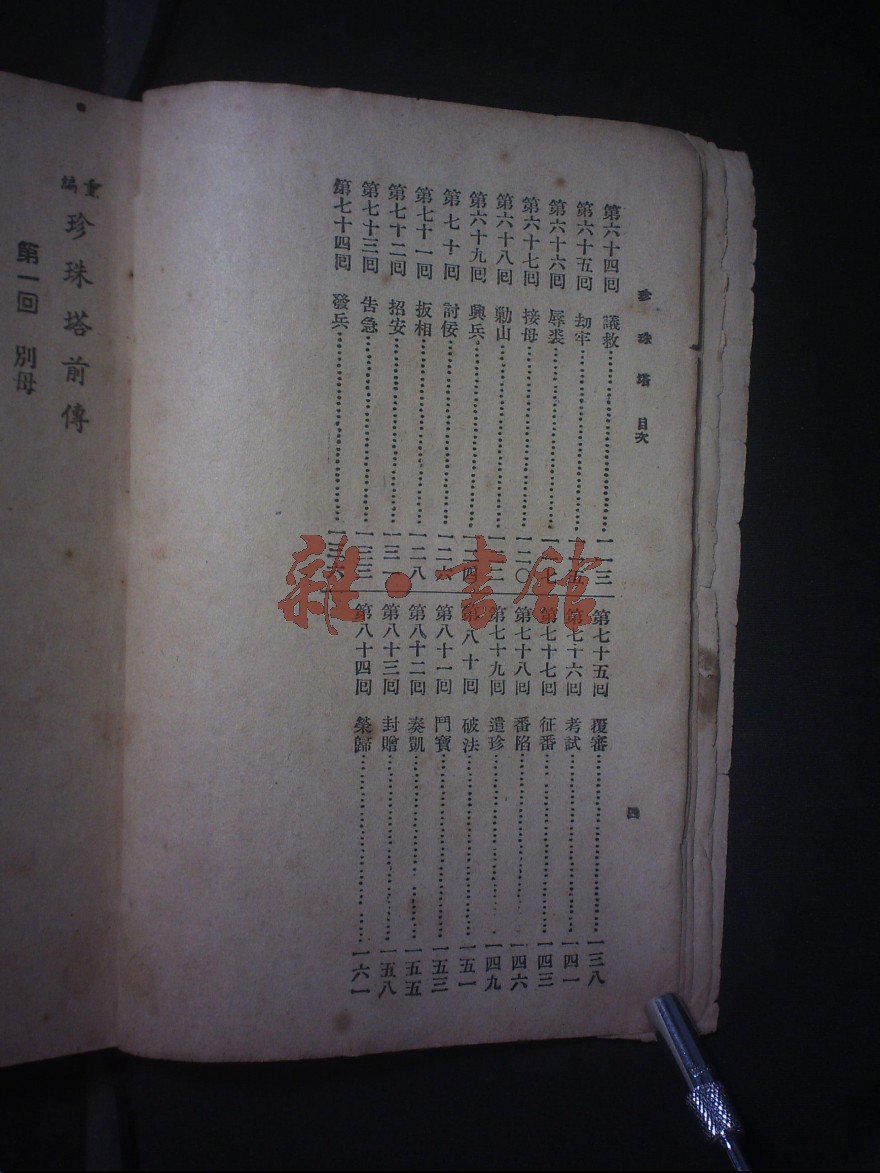 珍珠塔 目次
第六十四回 議救……一一三
第六十五回 劫牢……一一五
第六十六回 辱裘……一一七
第六十七回 接母……一二〇
第六十八回 勦山……
第六十九回 興兵……一二四
第七十回 討佞……一二六
第七十一回 扳相……一二八
第七十二回 招安……一三一
第七十三回 告急……一三三
第七十四回 發兵……一三六
第七十五回 覆審……一三八
第七十六回 考試……一四一
第七十七回 征番……一四三
第七十八回 番陷……一四六
第七十九回 遣珍……一四九
第八十回 破法……一五一
第八十一回 鬥寶……一五三
第八十二回 奏凱……一五五
第八十三回 封贈……一五八
第八十四回 榮歸……一六一
四
重編 珍珠塔前傳
第一回 別母
雜·書館